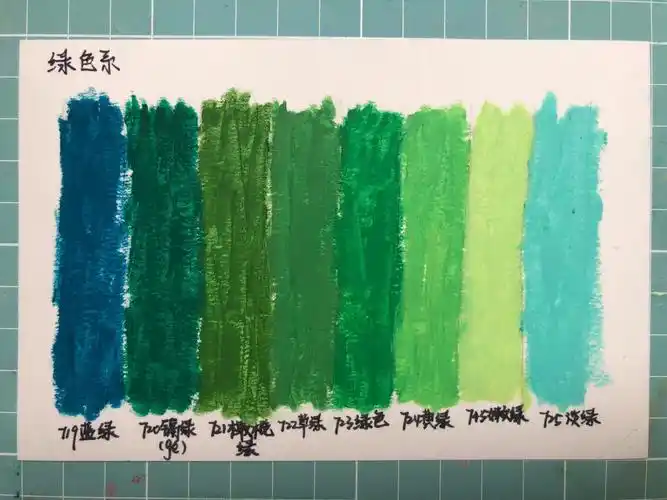 绿色系
719蓝绿
720镉绿
(gé)
721橄榄
绿
722草绿
723绿色
724黄绿
745嫩绿
725淡绿